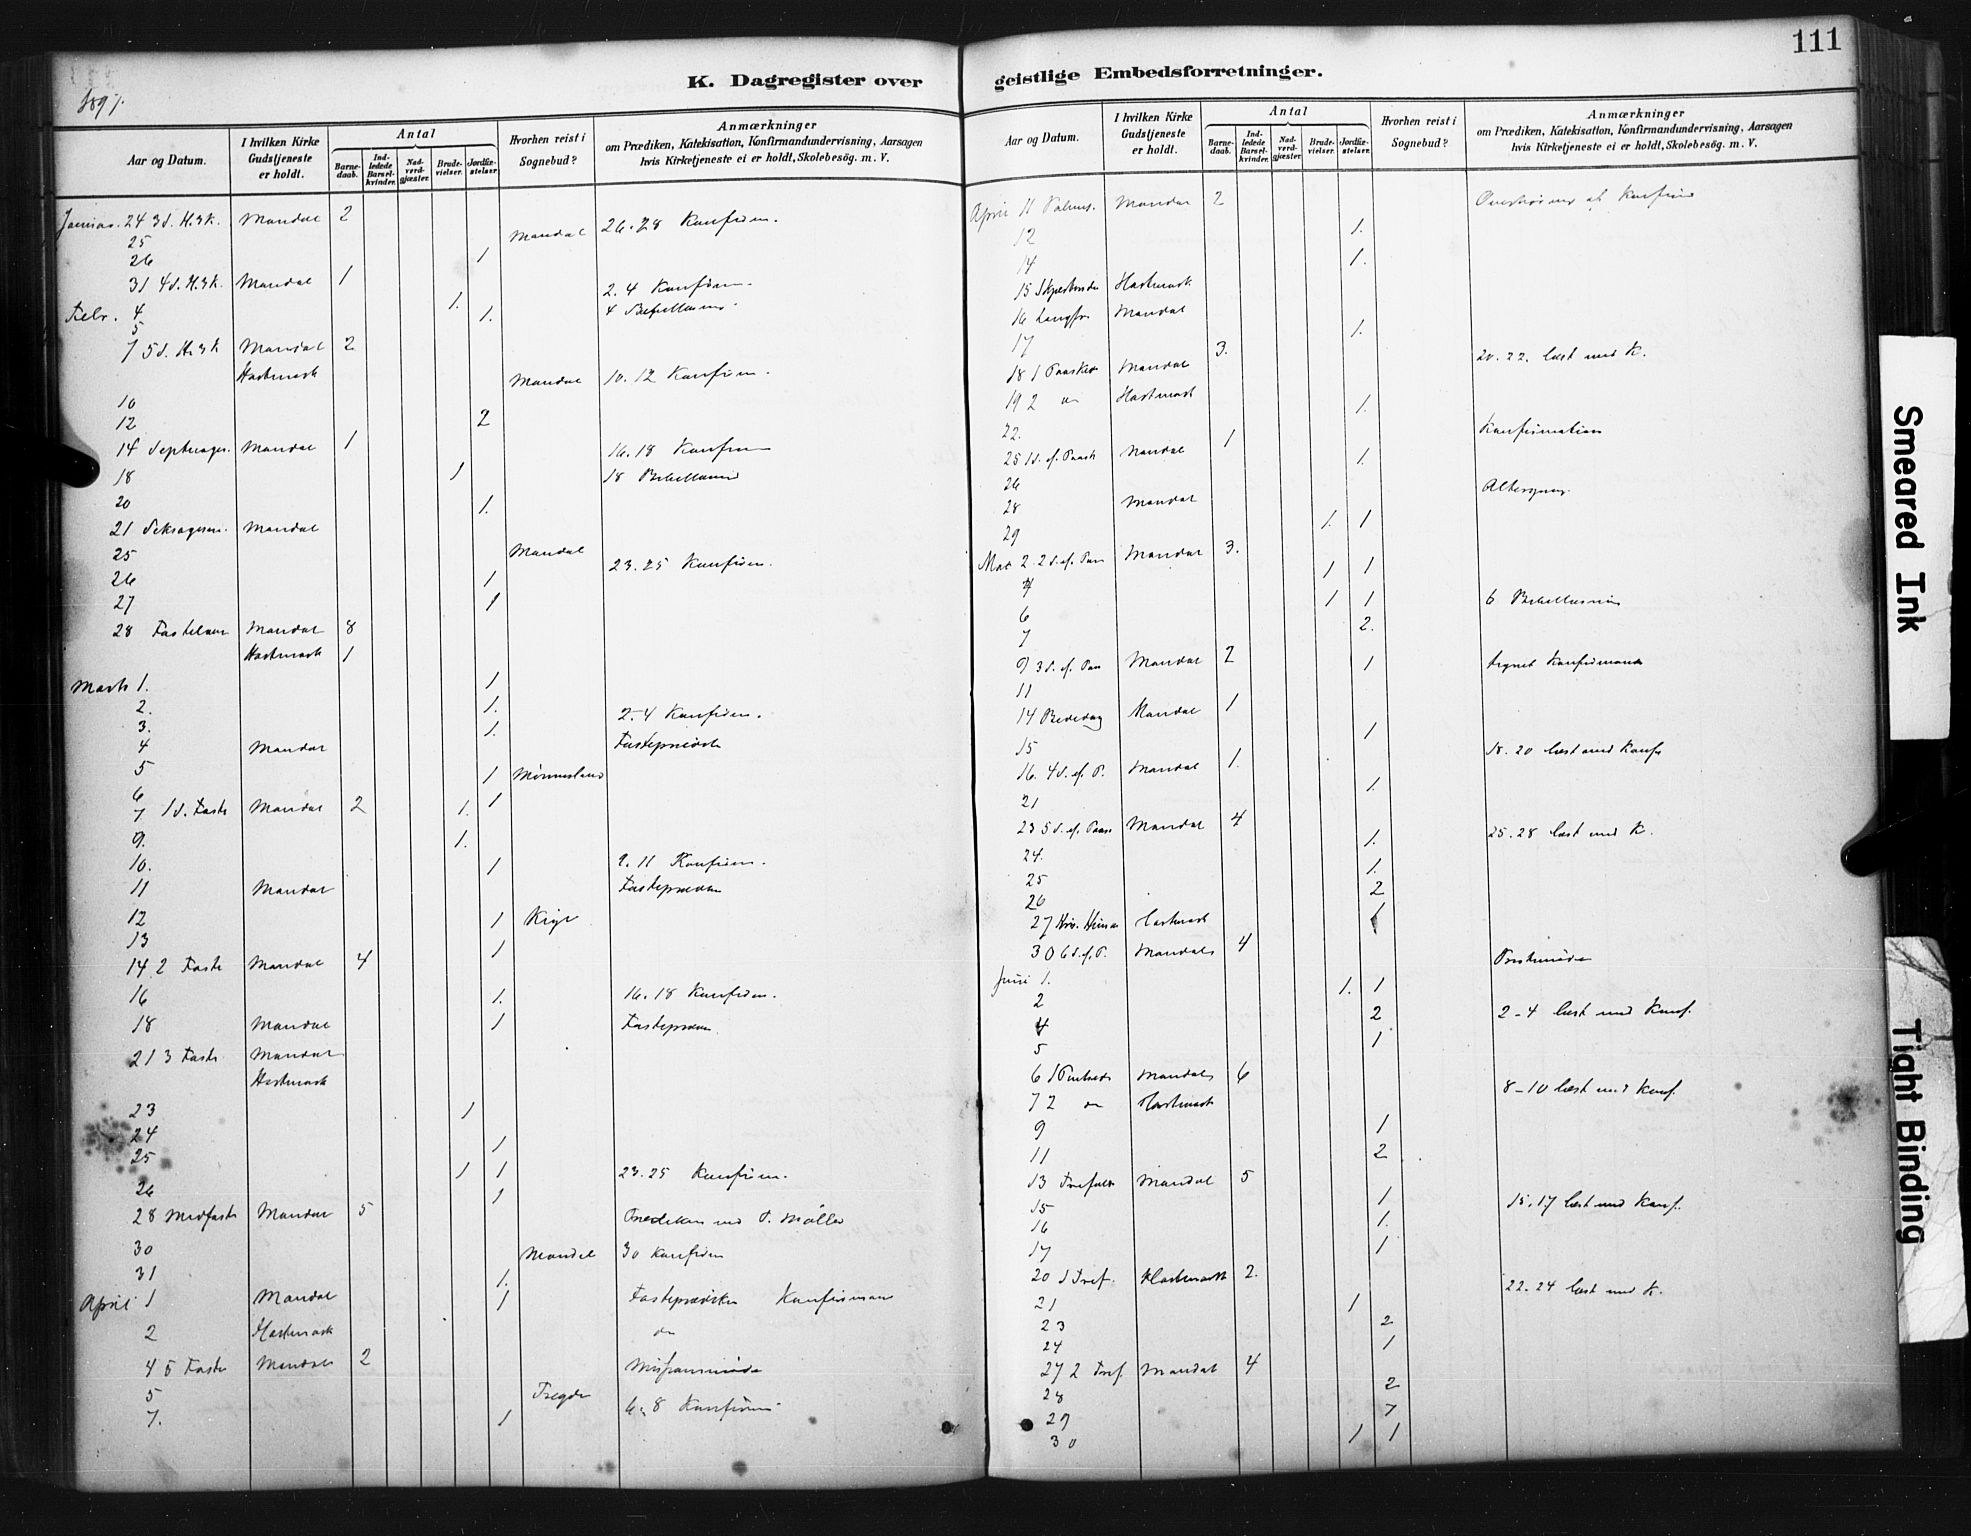 111
1897.
K. Dagregister over geistlige Embedsforretninger.
Aar og Datum. I hvilken Kirke Gudstjeneste er holdt. Antal Barnedaab. Indledede Barselkvinder. Nadverdgjæster. Brudevielser. Jordfæstelser. Hvorhen reist i Sognebud? Anmærkninger om Prædiken, Katekisation, Konfirmandundervisning, Aarsagen hvis Kirketjeneste ei er holdt, Skolebesøg. m. V.
24 3 S. H.3K. Mandal 2
25 Mandal 26.28 Konfirm.
26 1
31 4 S. H.3K. Mandal 1
Febr. 4 1. 2.4 Konfirm.
5 1. 4
7 5 S. H.3K Mandal 2
Hartmark
10 Mandal 10.12 Konfirm.
12 2
14 Septuages. Mandal 1
18 1 16.18 Konfirm
18
20 1.
21 Mandal
25 Mandal 23.25 Konfirm.
26 1
27 1
28 Fastelavn Mandal 8
Hartmark 1
Marts 1. 1
2. 1. 2-4 Konfirm.
3. 1.
4 Mandal
5 1
6 1
7 1 S. Faste Mandal 2 1.
9. 1.
10. 1 9.11 Konfirm.
11 Mandal
12 1
13 1
14 2 Faste Mandal 4
16 1. 16.18 Konfirm.
18 Mandal 1
21 3 Faste Mandal
Hartmark
23 1
24 1
25 1 1 23.25 Konfirm.
26 1
28 Midfaste Mandal 5 P. Møller
30 Mandal 30 Konfirm
31 1.
April 1 Mandal 1
2 Hartmark do
4 5 Faste Mandal 2
5 Tregde
7. 1 6.8 Konfirm.
Aar og Datum. I hvilken Kirke Gudstjeneste er holdt. Antal Barnedaab. Indledede Barselkvinder. Nadverdgjæster. Brudevielser. Jordfæstelser. Hvorhen reist i Sognebud? Anmærkninger om Prædiken, Katekisation, Konfirmandundervisning, Aarsagen hvis Kirketjeneste ei er holdt, Skolebesøg. m. V.
April 11 Palmes. Mandal 2
12 1.
14 1.
15 Hartmark
16 Langfr Mandal
17 1.
18 1 Paaske Mandal 3. 20.22. læst med K.
19 2 do Hartmark
22. 1.
25 1 S. ef. Paask Mandal 1 Konfirmation
26 1.
28 Mandal Altergang.
29 1. 1
Mai 2 2 S. ef. Paa Mandal 3.
4 1 1
6 1 1 6
7 2.
9 3 S. ef. Paa Mandal 2
11 1
14 Bededag Mandal 1
15 1
16. 4 S. ef. P. Mandal 1. 18.20 læst med Konf
21 1.
23 5 S. ef. Paas Mandal 4
24. 1. 25.28 læst med K.
25 1.
26 2
27 Hartmark 1
30 6 S. ef. P. Mandal 4
Juni 1. 1. 1
2 2 2-4 læst med Konf.
4 1
5
6 1 Mandal 6
7 2 do Hartmark 8-10 læst med Konf.
9 1
11 2
13 Mandal 5
15 1 15.17 læst med Konf.
16 1.
17 1
20 1 Tref. Hartmark 2.
21 1 22-24 læst med K.
23 2
24 1
27 2 Tref. Mandal 4
28 2
29
30 1 1
Smeared Ink
Tight Binding